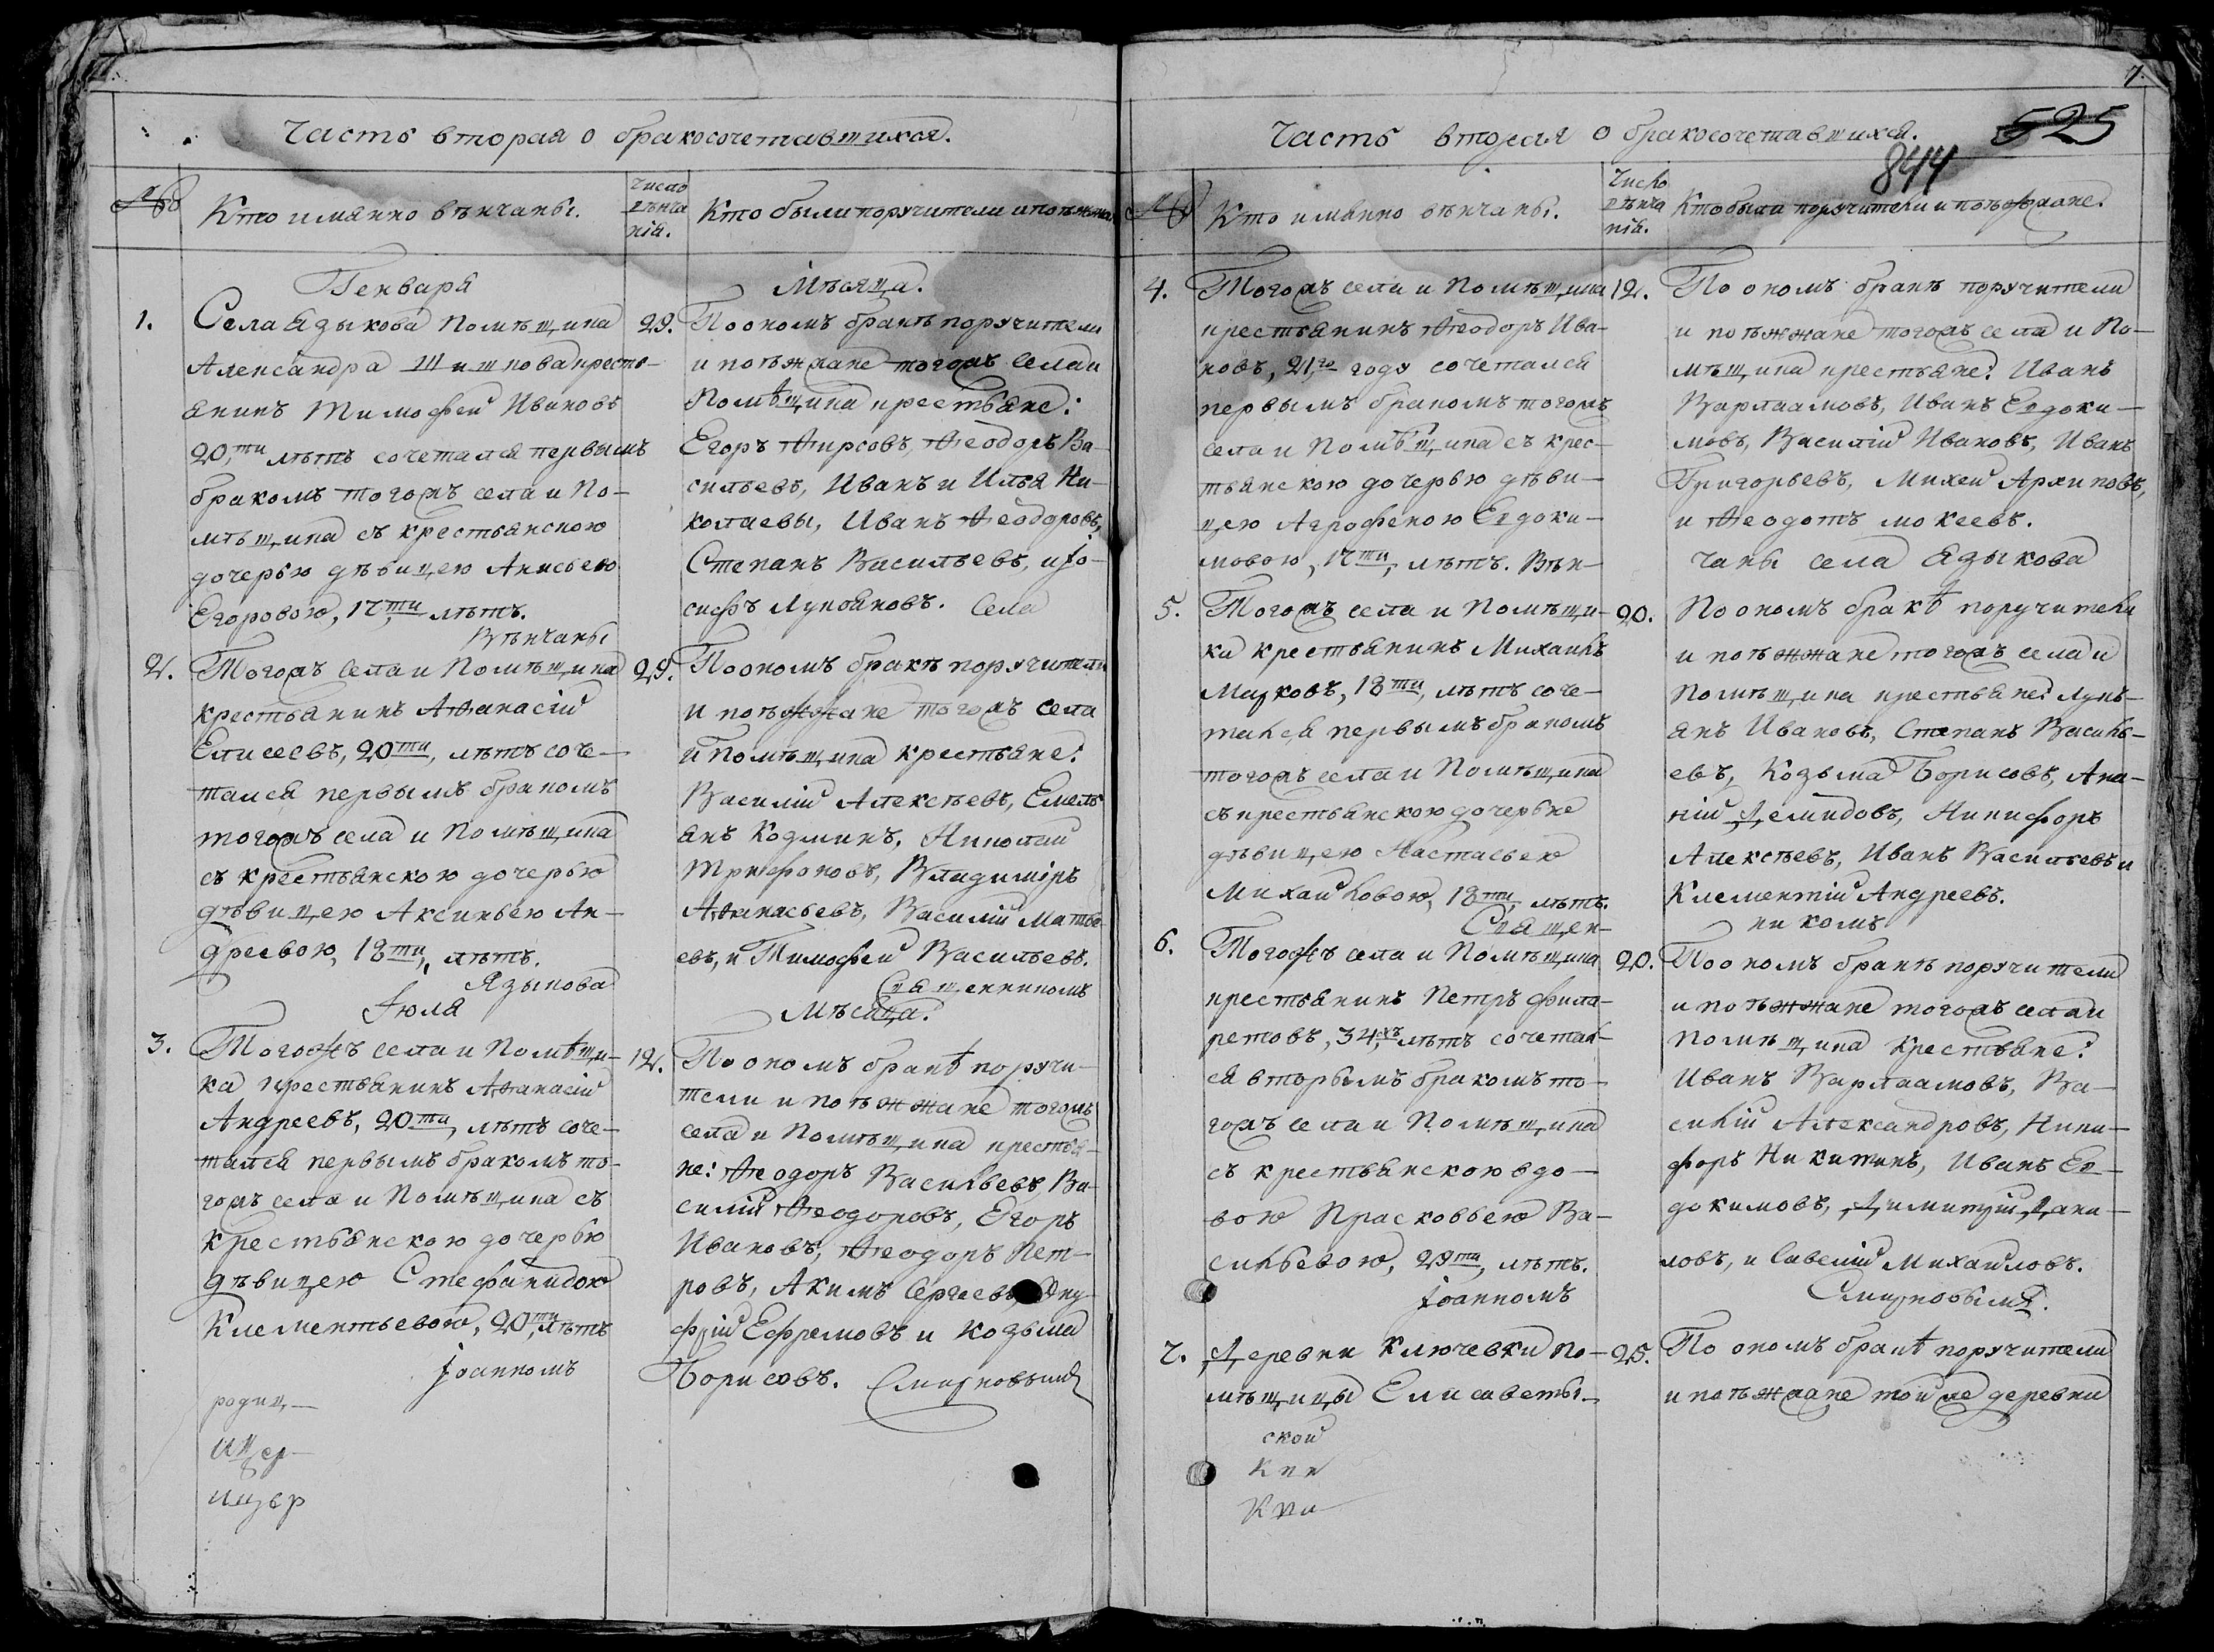 Часть вторая о бракосочетавшихся.
№
Кто имянно вѣнчаны.
Число
вѣнча
нія.
Кто были поручители и поѣзжана
Генваря
Мѣсяца.
1.
Села Языкова Помѣщика
Александра Шишкова кресть-
янинъ Тимофей Ивановъ
20,ти лѣтъ сочетался первымъ
бракомъ тогожъ села и По-
мѣщика съ крестьянскою
дочерью дѣвицею Анисьею
Егоровою, 17ти, лѣтъ.
Вѣнчаны
29.
По ономъ бракѣ поручители
и поѣзжане тогожъ села и
Помѣщика крестьяне:
Егоръ Ѳирсовъ, Ѳеодоръ Ва-
сильевъ, Иванъ и Илья Ни-
колаевы, Иванъ Ѳеодоровъ,
Степанъ Васильевъ, и Іо-
сифъ Лукояновъ. Села
2.
Тогожъ села и Помѣщика
крестьянинъ Аѳанасій
Елисеевъ, 20ти, лѣтъ соче-
тался первымъ бракомъ
тогожъ села и Помѣщика
съ крестьянскою дочерью
дѣвицею Аксиньею Ан-
дреевою, 18ти, лѣтъ.
Языкова
29.
По ономъ бракѣ поручители
и поѣжжане тогожъ села
и Помѣщика крестьяне:
Василій Алексѣевъ, Емель
янъ Козминъ, Николай
Трифоновъ, Владимиръ
Аѳанасьевъ, Василій Матве
евъ, и Тимофей Васильевъ.
Священникомъ
Іюля
Мѣсяца.
3.
Тогожъ села и Помѣщи-
ка крестьянинъ Аѳанасій
Андреевъ, 20ти, лѣтъ соче-
тался первымъ бракомъ то-
гожъ села и Помѣщика съ
крестьянскою дочерью
дѣвицею Стефанидою
Клементьевою, 20ти, лѣтъ
Іоанномъ
12.
По ономъ бракѣ поручи-
тели и поѣжжане тогожъ
села и Помѣщика крестья-
не: Ѳеодоръ Васильевъ, Ва-
силій Ѳеодоровъ, Егоръ
Ивановъ, Ѳеодоръ Пет-
ровъ, Акимъ Сергѣевъ, Ону-
фрій Ефремовъ и Козьма
Борисовъ. Смирновымъ
родиц-
7.
525
844
Часть вторая о бракосочетавшихся.
№
Кто имянно вѣнчаны.
Число
вѣнча
нія.
Кто были поручители и поѣзжане.
4.
Тогожъ села и Помѣщика
крестьянинъ Ѳеодоръ Ива-
новъ, 21,го году сочетался
первымъ бракомъ тогожъ
села и Помѣщика съ крес-
тьянскою дочерью дѣви-
цею Агрофеною Евдоки-
мовою, 17ти, лѣтъ. Вѣн-
12.
По ономъ бракѣ поручители
и поѣжжане тогожъ села и По-
мѣщика крестьяне: Иванъ
Варлаамовъ, Иванъ Евдоки-
мовъ, Василій Ивановъ, Иванъ
Григорьевъ, Михей Архиповъ,
и Ѳеодотъ Мокеевъ.
чаны села Языкова
5.
Тогожъ села и Помѣщи-
ка крестьянинъ Михаилъ
Марковъ, 18ти, лѣтъ соче-
тался первымъ бракомъ
тогожъ села и Помѣщика
съ крестьянскою дочерью
дѣвицею Настасьею
Михайловою, 18ти, лѣтъ.
Священ-
20.
По ономъ бракѣ поручители
и поѣжжане тогожъ села и
Помѣщика крестьяне: Лукь-
янъ Ивановъ, Степанъ Василь-
евъ, Козьма Борисовъ, Ана-
ній Демидовъ, Никифоръ
Алексѣевъ, Иванъ Васильевъ и
Клементій Андреевъ.
никомъ
6.
Тогожъ села и Помѣщика
крестьянинъ Петръ Фила-
ретовъ, 34,хъ лѣтъ сочетал-
ся вторымъ бракомъ то-
гожъ села и Помѣщика
съ крестьянскою вдо-
вою Прасковьею Ва-
сильевою, 29ти, лѣтъ.
Іоанномъ
20.
По ономъ бракѣ поручители
и поѣжжане тогожъ села и
Помѣщика крестьяне:
Иванъ Варлаамовъ, Ва-
силій Александровъ, Ники-
форъ Никитинъ, Иванъ Ев-
докимовъ, Димитрій Дани-
ловъ, и Савелій Михайловъ.
Смирновымъ.
7.
Деревни Ключевки По-
мѣщицы Елисаветы
ской
25.
По ономъ бракѣ поручители
и поѣзжане той же деревни